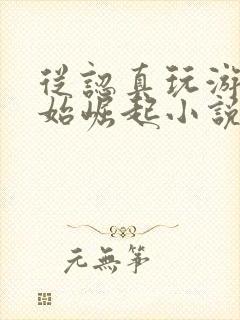 從認真玩游
始崛起小說
元無筆